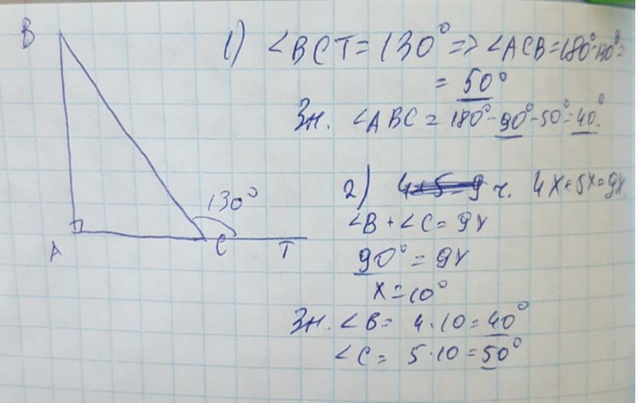 B
1) ∠BCT=130°=>∠ACB=180°-130°=
= 50°
Зн. ∠ABC = 180°-90°-50°=40°
130°
A
C
T
2) 4+5=9 ч. 4x+5x=9x
∠B+∠C=9x
90°=9x
x=10°
Зн. ∠B= 4·10=40°
∠C= 5·10=50°